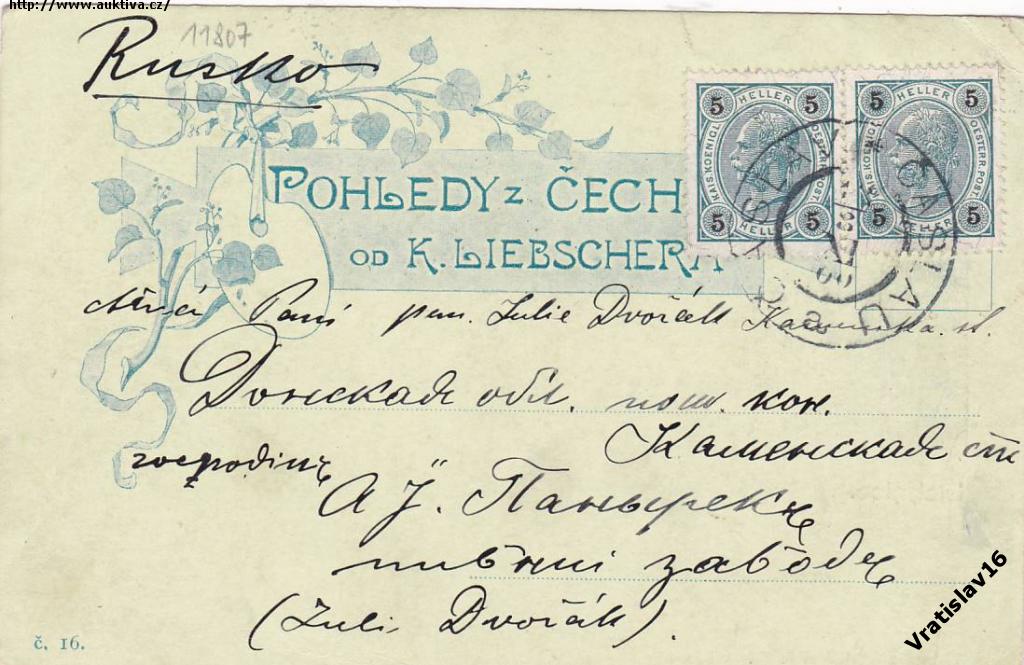 http://www.auktiva.cz/
11807
Rusko
POHLEDY z ČECH
OD K. LIEBSCHERA
5 HELLER 5
KAIS. KOENIGL. OESTERR. POST.
5 HELLER 5
5 HELLER 5
KAIS. KOENIGL. OESTERR. POST.
5 HELLER 5
ČÁSLAV
ČASLAU
Paní pan. Julie Dvořák
Донская обл. почт. кон.
Каменская ст
господину
А J. Панырекъ
завод
(Juli Dvořák).
č. 16.
Vratislav16